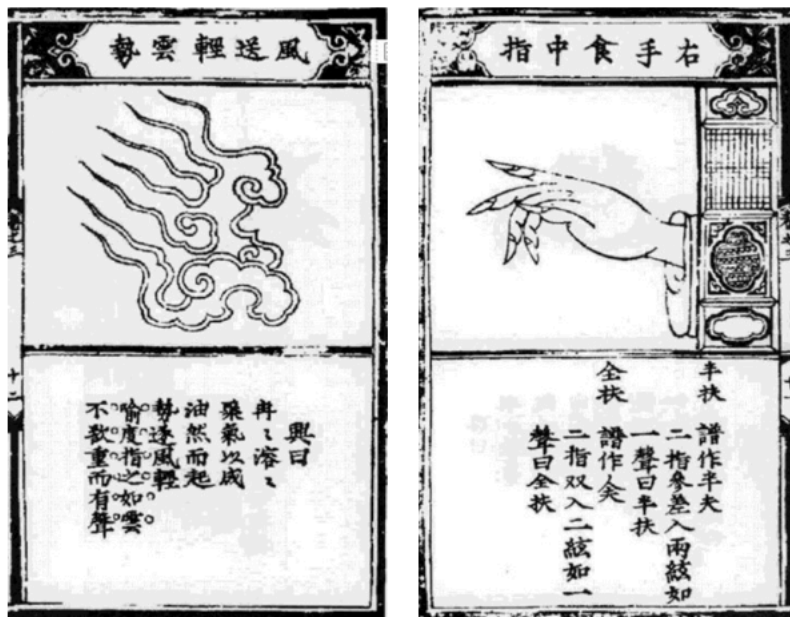 右手食中指
半扶 譜作半夫
二指參差入兩絃如
一聲曰半扶
全扶 譜作
二指双入二絃如一
聲曰全扶
風送輕雲勢
興曰
冉〻溶〻
氣以成
油然而起
勢逐風輕
喻度指之如雲
不欲重而有聲